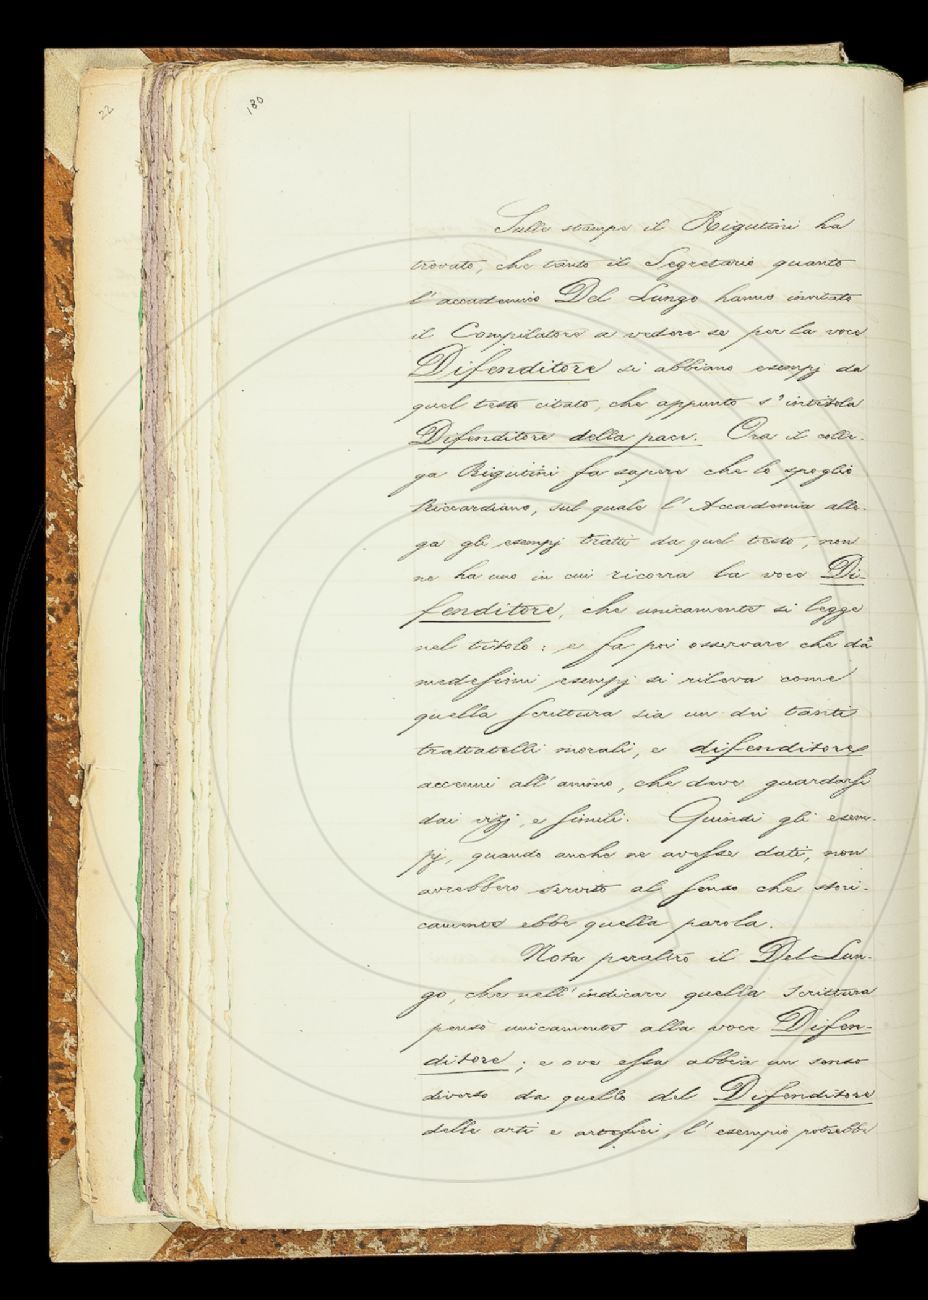 22
180
Sulle stampe il Rigutini ha
trovato, che tanto il Segretario quanto
l'accademico Del Lungo hanno invitato
il Compilatore a vedere se per la voce
Difenditore si abbiano esempj da
quel testo citato, che appunto s'intitola
Difenditore della pace. Ora il colle-
ga Rigutini fa sapere che lo spoglio
Riccardiano, sul quale l'Accademia alle-
ga gli esempj tratti da quel testo, non
ne ha uno in cui ricorra la voce Di-
fenditore, che unicamente si legge
nel titolo: e fa poi osservare che da'
medesimi esempj si rileva come
quella scrittura sia un dei tanti
trattatelli morali, e difenditore
accenni all'animo, che deve guardarsi
dai vizj, e simili. Quindi gli esem-
pj, quando anche ne avesse dati, non
avrebbero servito al senso che stori-
camente ebbe quella parola.
Nota peraltro il Del Lun-
go, che nell'indicare quella scrittura
pensò unicamente alla voce Difen-
ditore; e ove essa abbia un senso
diverso da quello del Difenditore
delle arti e artefici, l'esempio potrebbe